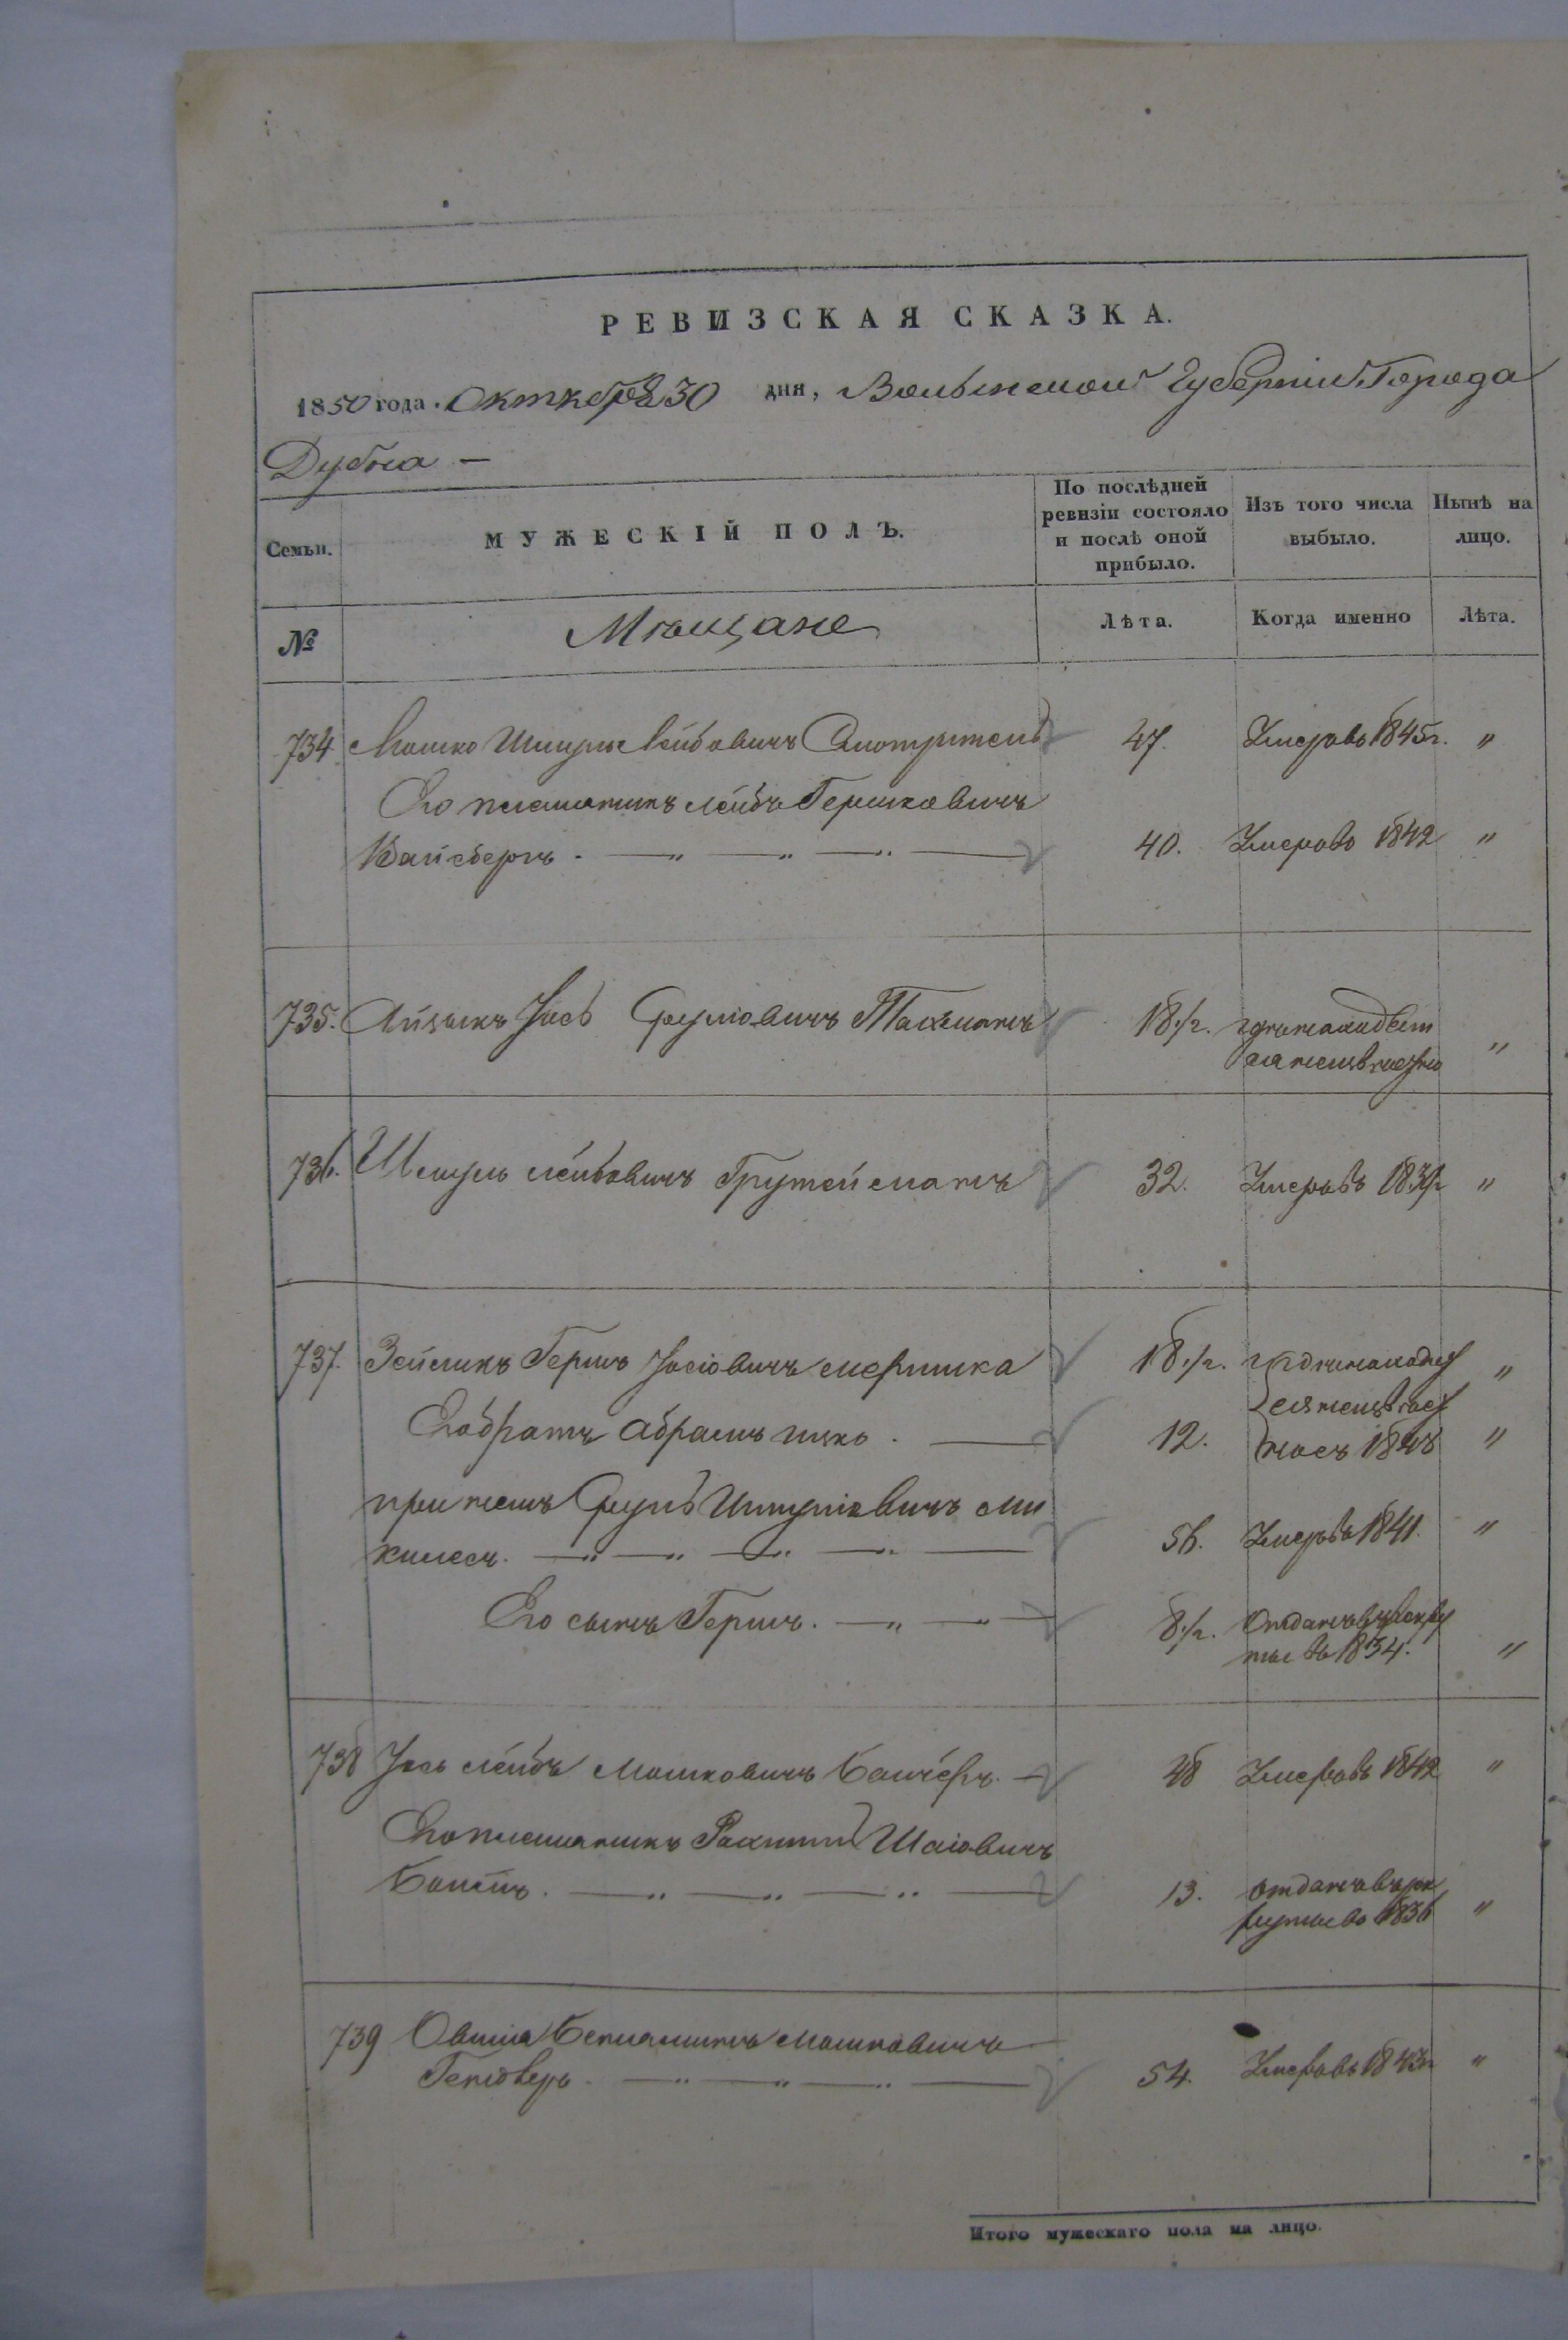 РЕВИЗСКАЯ СКАЗКА.
1850 года. Октября 30 дня, Волынской Губерніи Города
Дубна —
Семьи. МУЖЕСКІЙ ПОЛЪ. По послѣдней ревизіи состояло и послѣ оной прибыло. Изъ того числа выбыло. Нынѣ на лицо.
№ Мѣщане Лѣта. Когда именно Лѣта.
734 Мошко Шмуль Лейбовичъ 47. Умеръ въ 1845г. "
Его племянникъ Лейба Гершковичъ
Вайсбергъ. — " — " — " — 40. Умеръ въ 1842 "
735. Айзыкъ Іось Сруліовичъ 18 1/2.
"
736. Шмуль Лейбовичъ 32. Умеръ въ "
737. Зейликъ Гершъ Іосіовичъ 18 1/2. "
Его братъ Абрамъ 12. 1848 "
при немъ Сруль Шмуліовичъ Ми
килесъ. — " — " — " — " — 56. Умеръ въ 1841. "
Его сынъ Гершъ. — " — " — 8 1/2. Отданъ въ рекру
ты въ 1834. "
738 Іось Лейба Мошковичъ 48 Умеръ въ 1842 "
Его племянникъ Шаіовичъ
— " — " — " — 13. отданъ въ рек
руты въ 1836 "
739 Овшія Беніаминъ Мошковичъ
— " — " — " — 54. Умеръ въ 1843г "
Итого мужескаго пола на лицо.